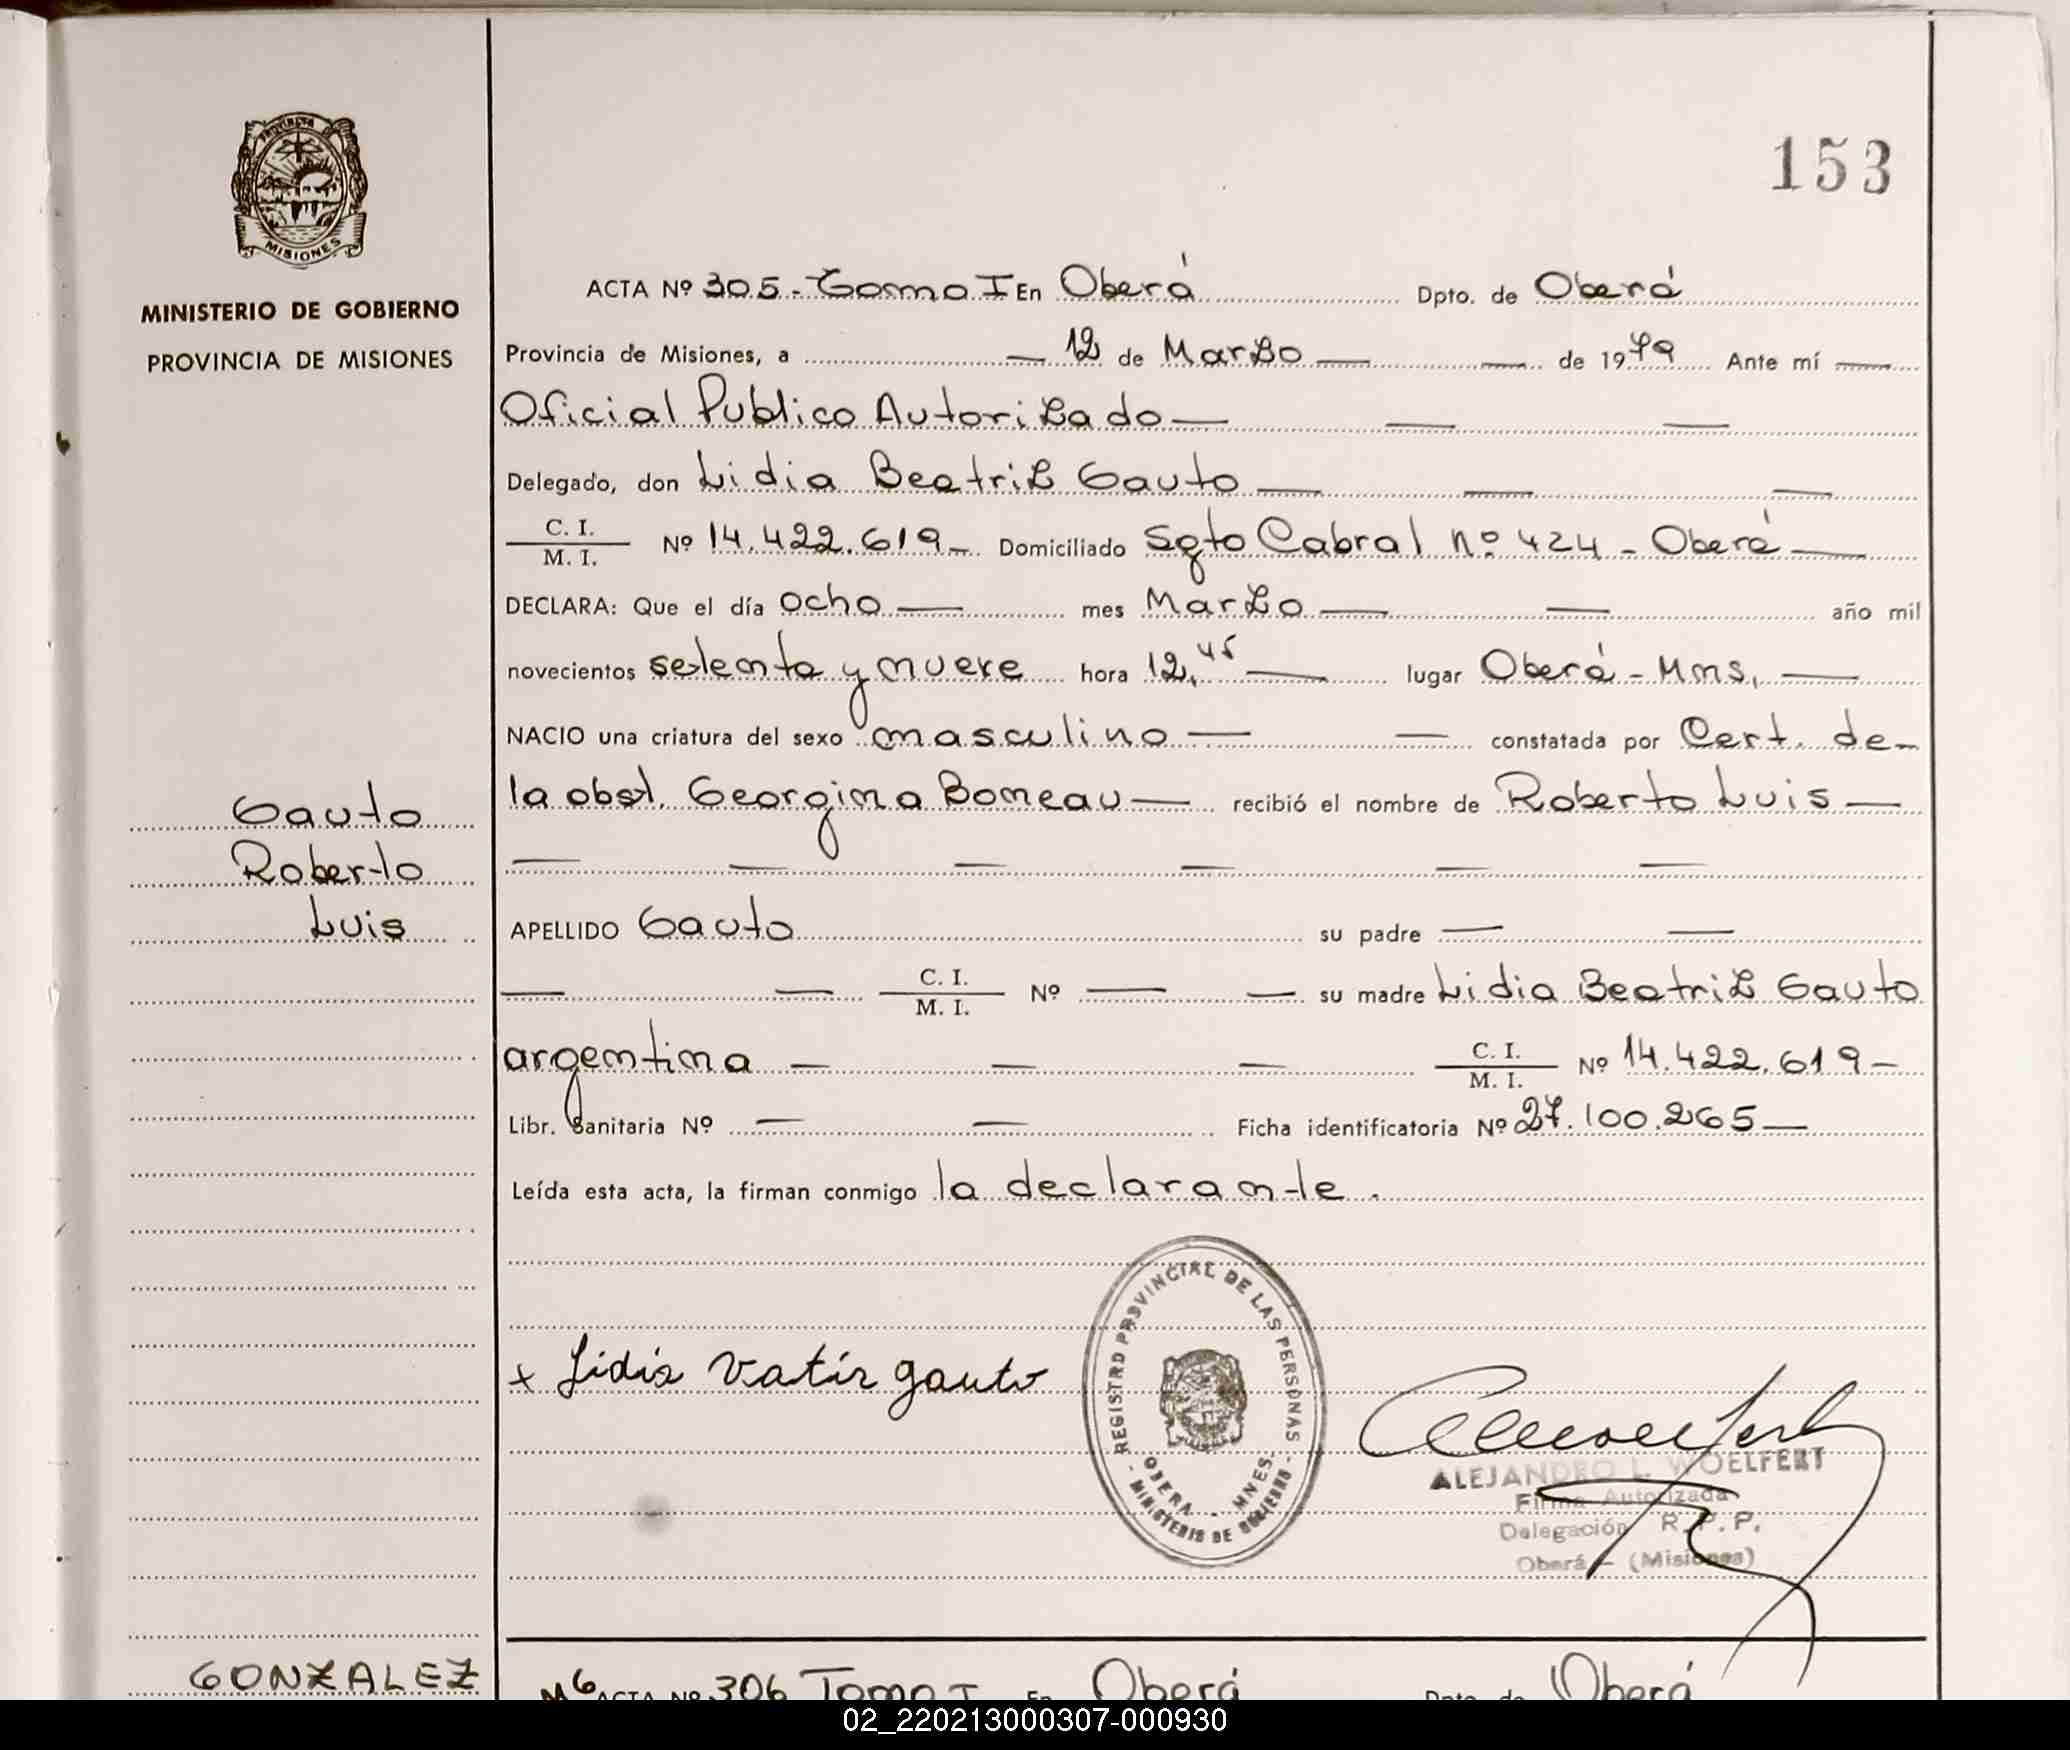 153
PROVINCIA
MISIONES
MINISTERIO DE GOBIERNO
PROVINCIA DE MISIONES
ACTA Nº 305 - Tomo I En Oberá Dpto. de Oberá
Provincia de Misiones, a — 12 de Marzo — — de 1979 Ante mí —
Oficial Publico Autorizado — — —
Delegado, don Lidia Beatriz Gauto — — —
C. I.
M. I. Nº 14.422.619 - Domiciliado Sgto Cabral nº 424 - Oberá —
DECLARA: Que el día ocho — mes Marzo — — año mil
novecientos setenta y nueve hora 12,45 — lugar Oberá - Mnes, —
NACIO una criatura del sexo masculino — — constatada por Cert. de -
la obst. Georgina Boneau — recibió el nombre de Roberto Luis —
— — — — — —
Gauto
Roberto
Luis
APELLIDO Gauto su padre — —
— — C. I.
M. I. Nº — — su madre Lidia Beatriz Gauto
argentina — — — C. I.
M. I. Nº 14.422.619 -
Libr. Sanitaria Nº — — Ficha identificatoria Nº 27.100.265 —
Leída esta acta, la firman conmigo la declarante.
x Lidia Vatir gauto
REGISTRO PROVINCIAL DE LAS PERSONAS
OBERA - MNES.
- MINISTERIO DE GOBIERNO -
ALEJANDRO L. WOELFERT
Firma Autorizada
Delegación R. P. P.
Oberá - (Misiones)
GONZALEZ
ACTA Nº 306 Tomo I En Oberá Dpto. de Oberá
02_220213000307-000930